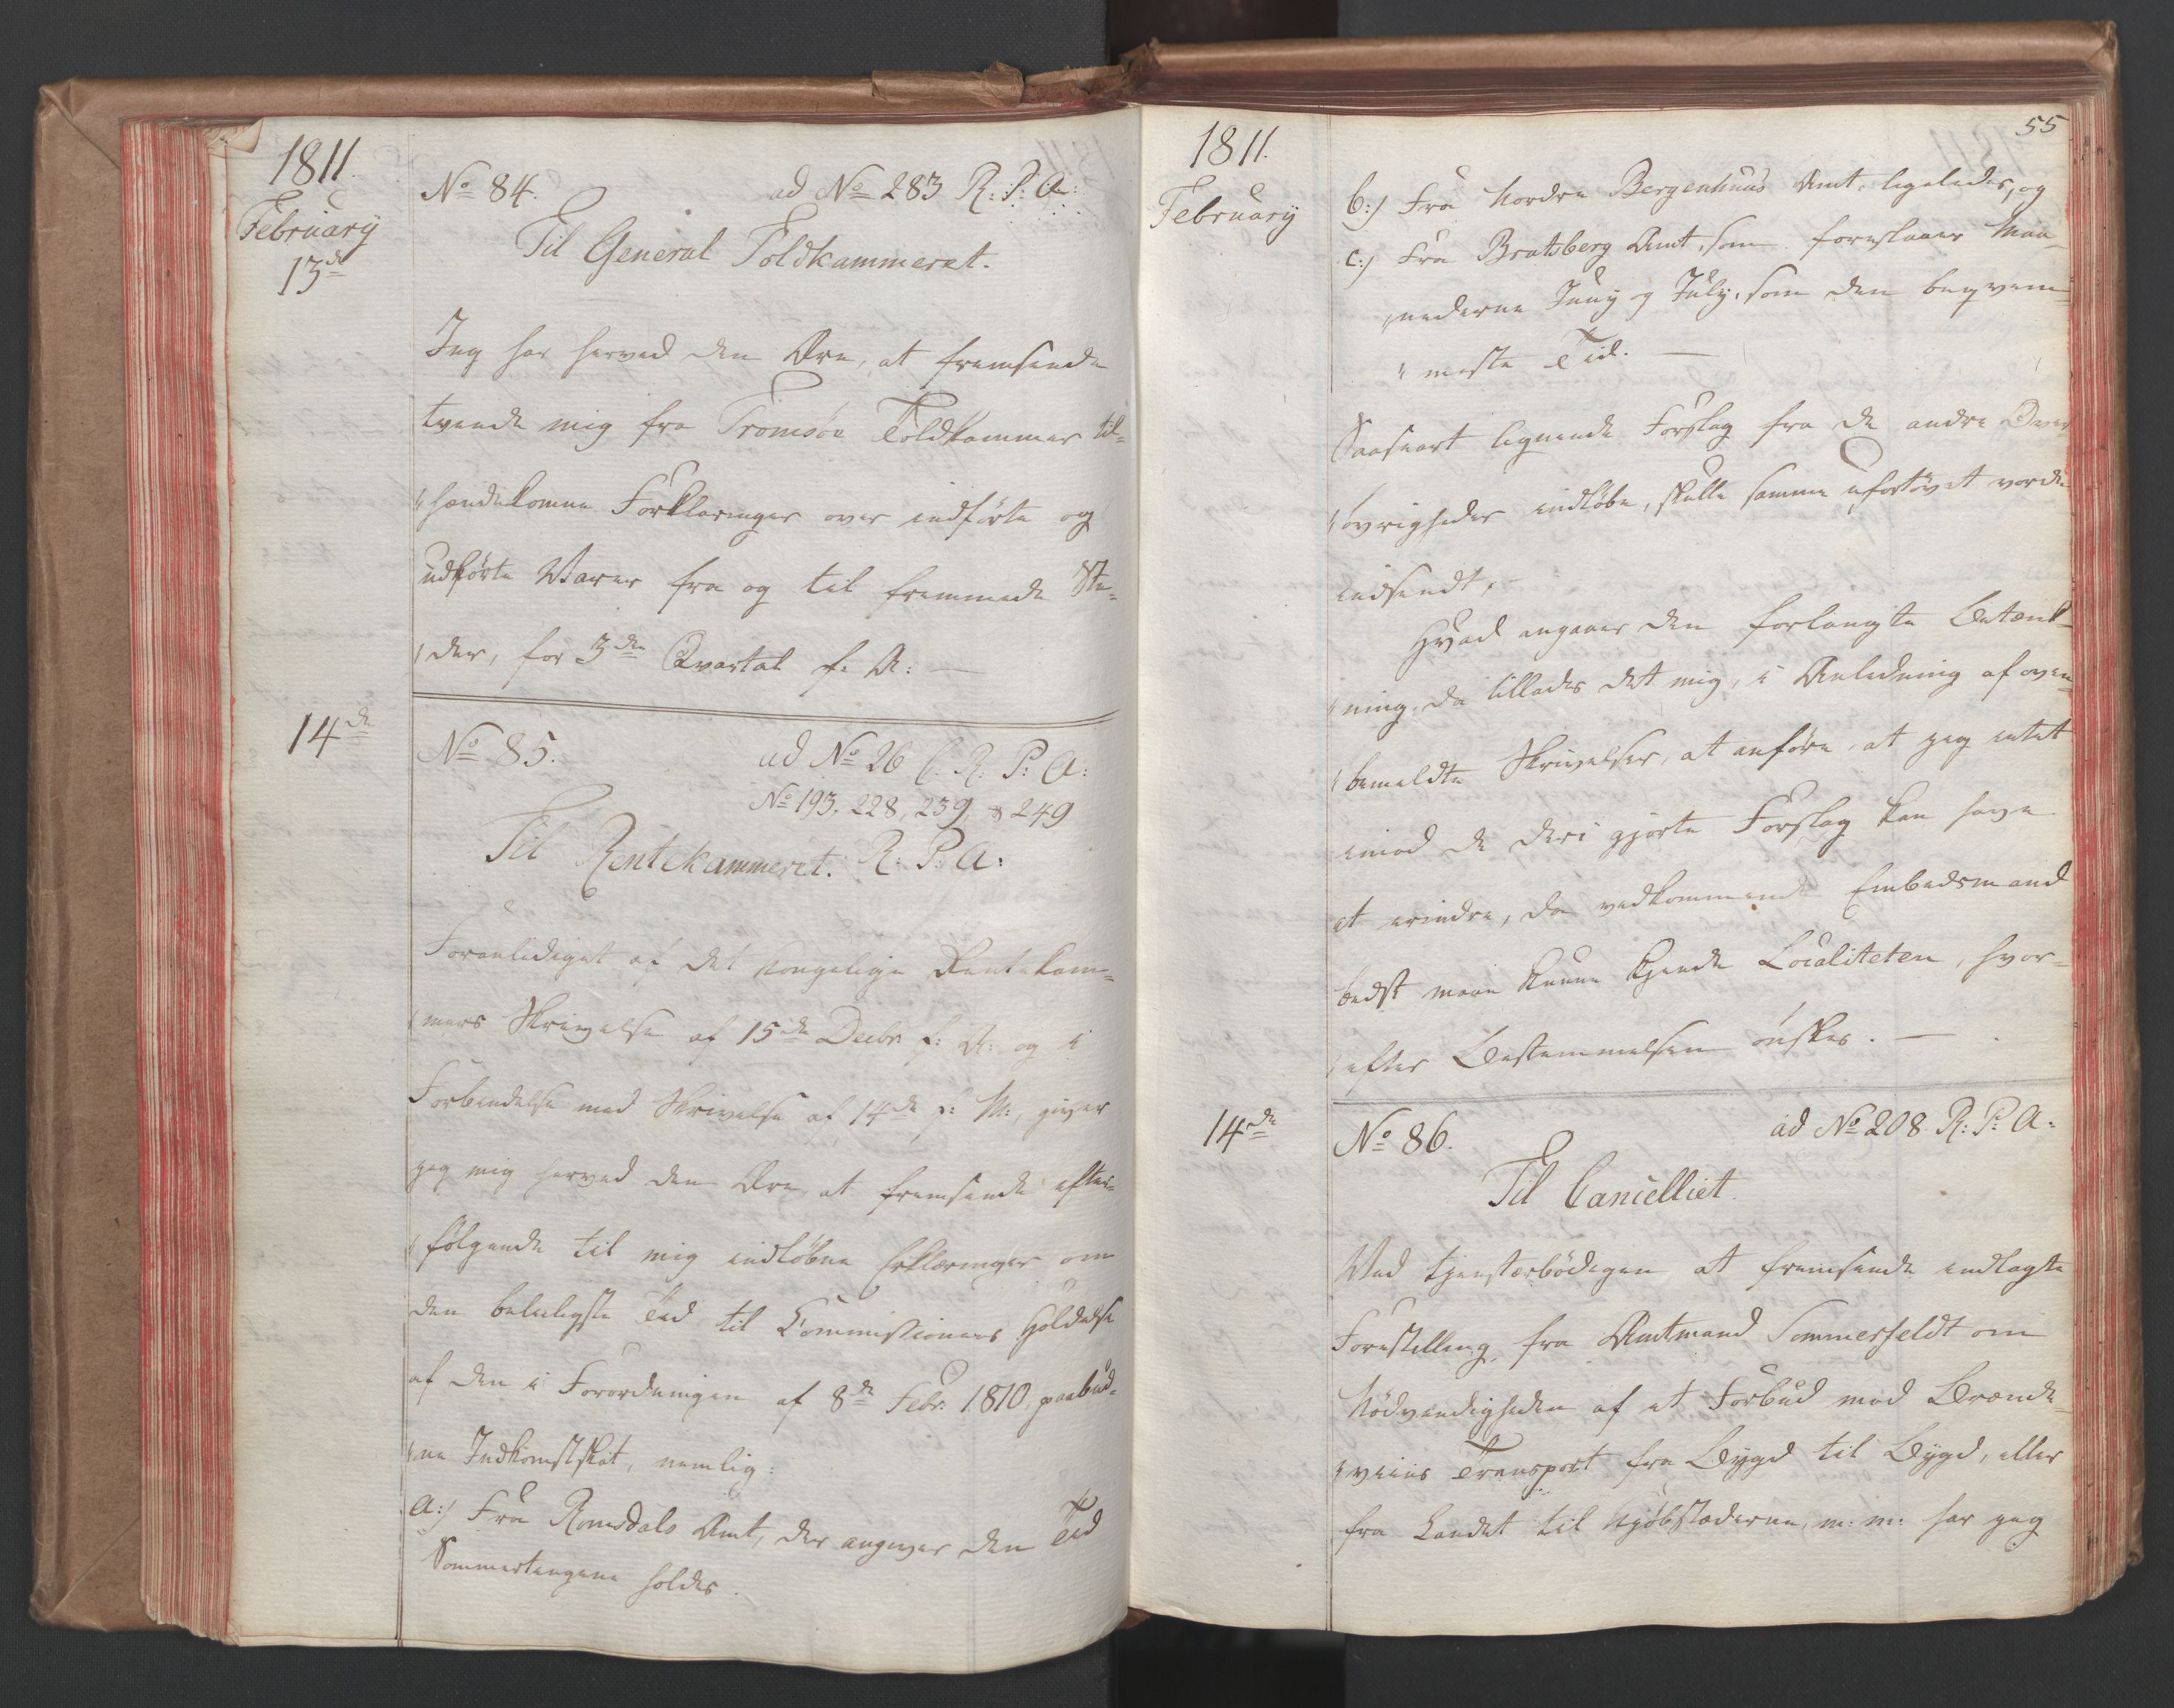 1811.
February
13de
No 84. ad No 283 R: P: A:
Til General Toldkammeret.
Jeg har herved den Ære, at fremsende
tvende mig fra Tromsöe Toldkammer til-
"hændekomne Forklaringer over indförte og
udförte Varer fra og til fremmede Ste-
"der, for 3die Qvartal f: A: —
14de
No 85. ad No 26 C. R: P: A:
No 193, 228, 239, & 249
Til Rentekammeret. R: P: A:
Foranlediget af det Kongelige Rentekam-
"mers Skrivelse af 15de Decbr f: A: og i
Forbindelse med Skrivelse af 14de f: M:, giver
jeg mig herved den Ære at fremsende efter-
"fölgende til mig indlöbne Erklæringer om
den beleiligste Tid til Commissioners Holdelse
af den i Forordningen af 8de Febr: 1810 paabud-
"ne Indkomstskat, nemlig:
a:) Fra Romsdals Amt, der angiver den Tid
Sommertingene holdes.
1811.
February
55
b:) Fra Nordre Bergenhuus Amt, ligeledes, og
c:) Fra Bratsberg Amt, som foreslaaer Maa-
"nederne Juny og July, som den beqvem-
"meste Tid. —
Saasnart lignende Forslag fra de andre Over-
"övrigheder indlöbe, skulle samme ufortövet vorde
indsendt. —
Hvad angaaer den forlangte Betænk-
"ning, da tillades det mig, i Anledning af oven-
"bemeldte Skrivelser, at anföre, at jeg intet
imod de deri gjorte Forslag kan have
at erindre, da vedkommende Embedsmænd
bedst maae kunne kjende Localiteten, hvor-
"efter Bestemmelsen önskes. —
14de
No 86. ad No 208 R: P: A:
Til Cancelliet.
Ved tjenstærbödigen at fremsende indlagte
Forestilling fra Amtmand Sommerfeldt om
Nödvendigheden af et Forbud mod Brænde-
"viins Transport fra Bygd til Bygd, eller
fra Landet til Kjöbstæderne, m: m: har jeg